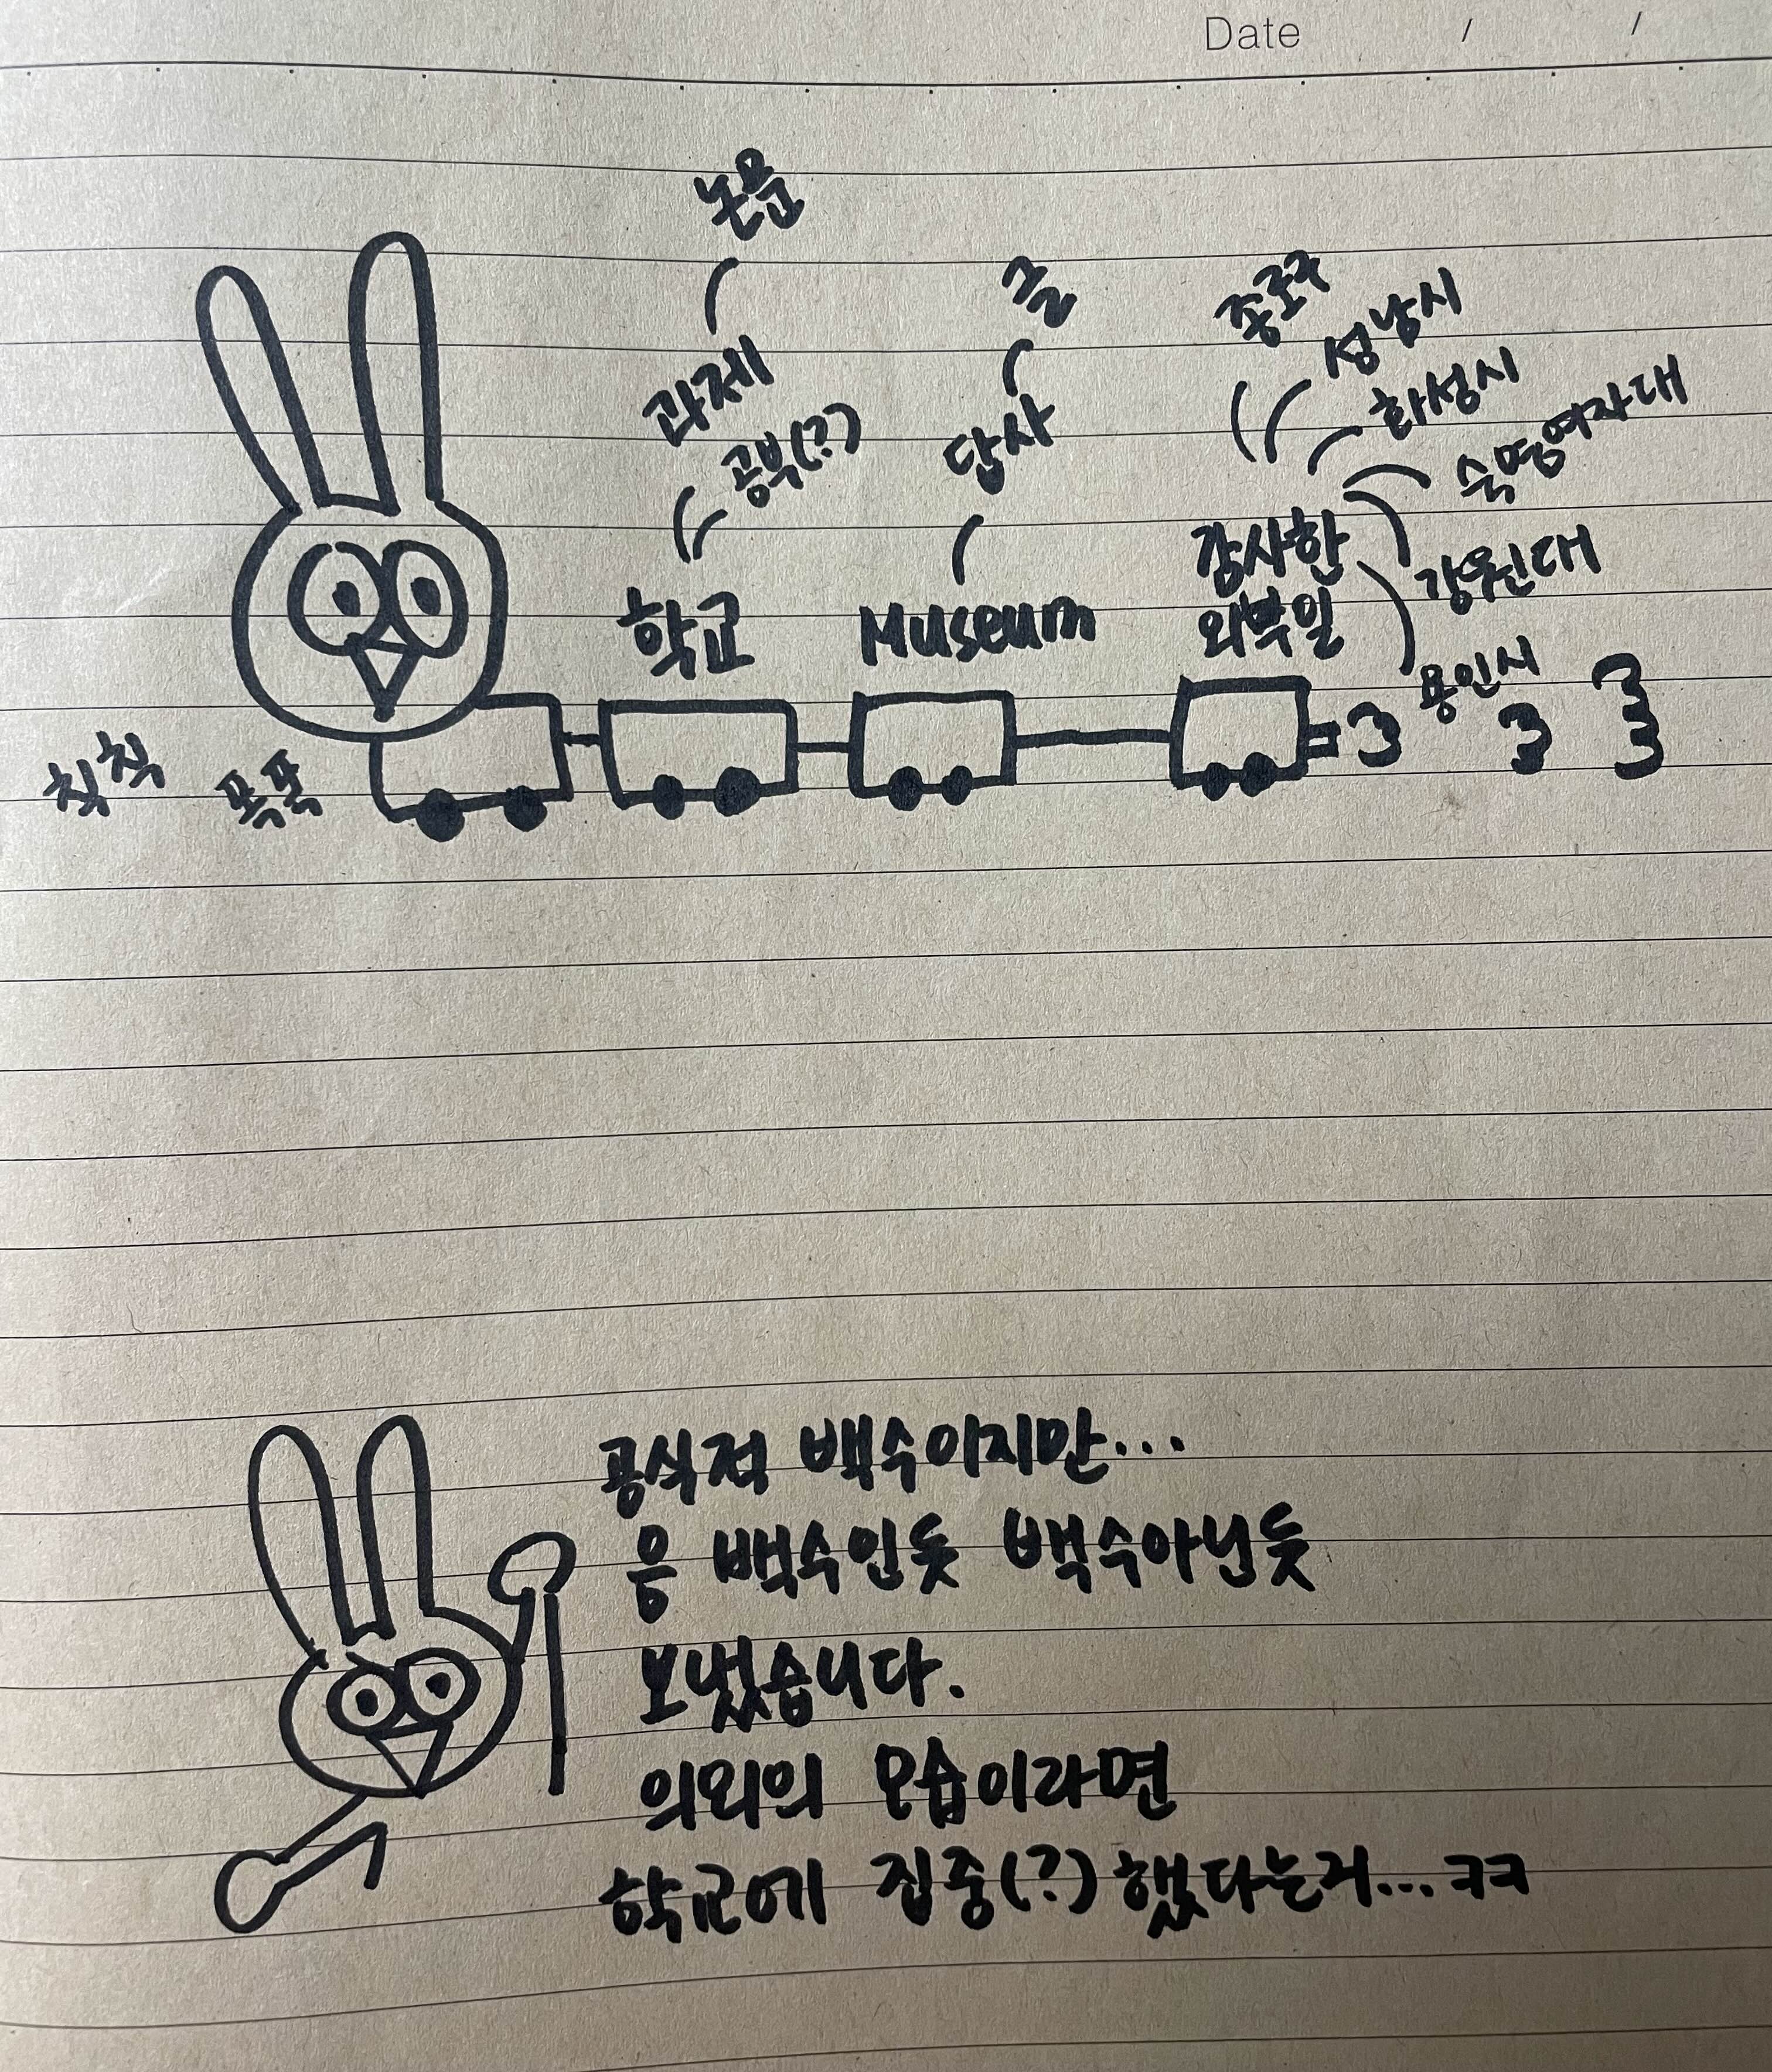 Date / /
논문
과제
공부(?)
학교
글
답사
Museum
종로구
성남시
화성시
숙명여자대
강원대
용인시
감사한
외부일
칙칙
폭폭
공식적 백수이지만...
은 백수인듯 백수아닌듯
보냈습니다.
의외의 모습이라면
학교에 집중(?)했다는거...ㅋㅋ